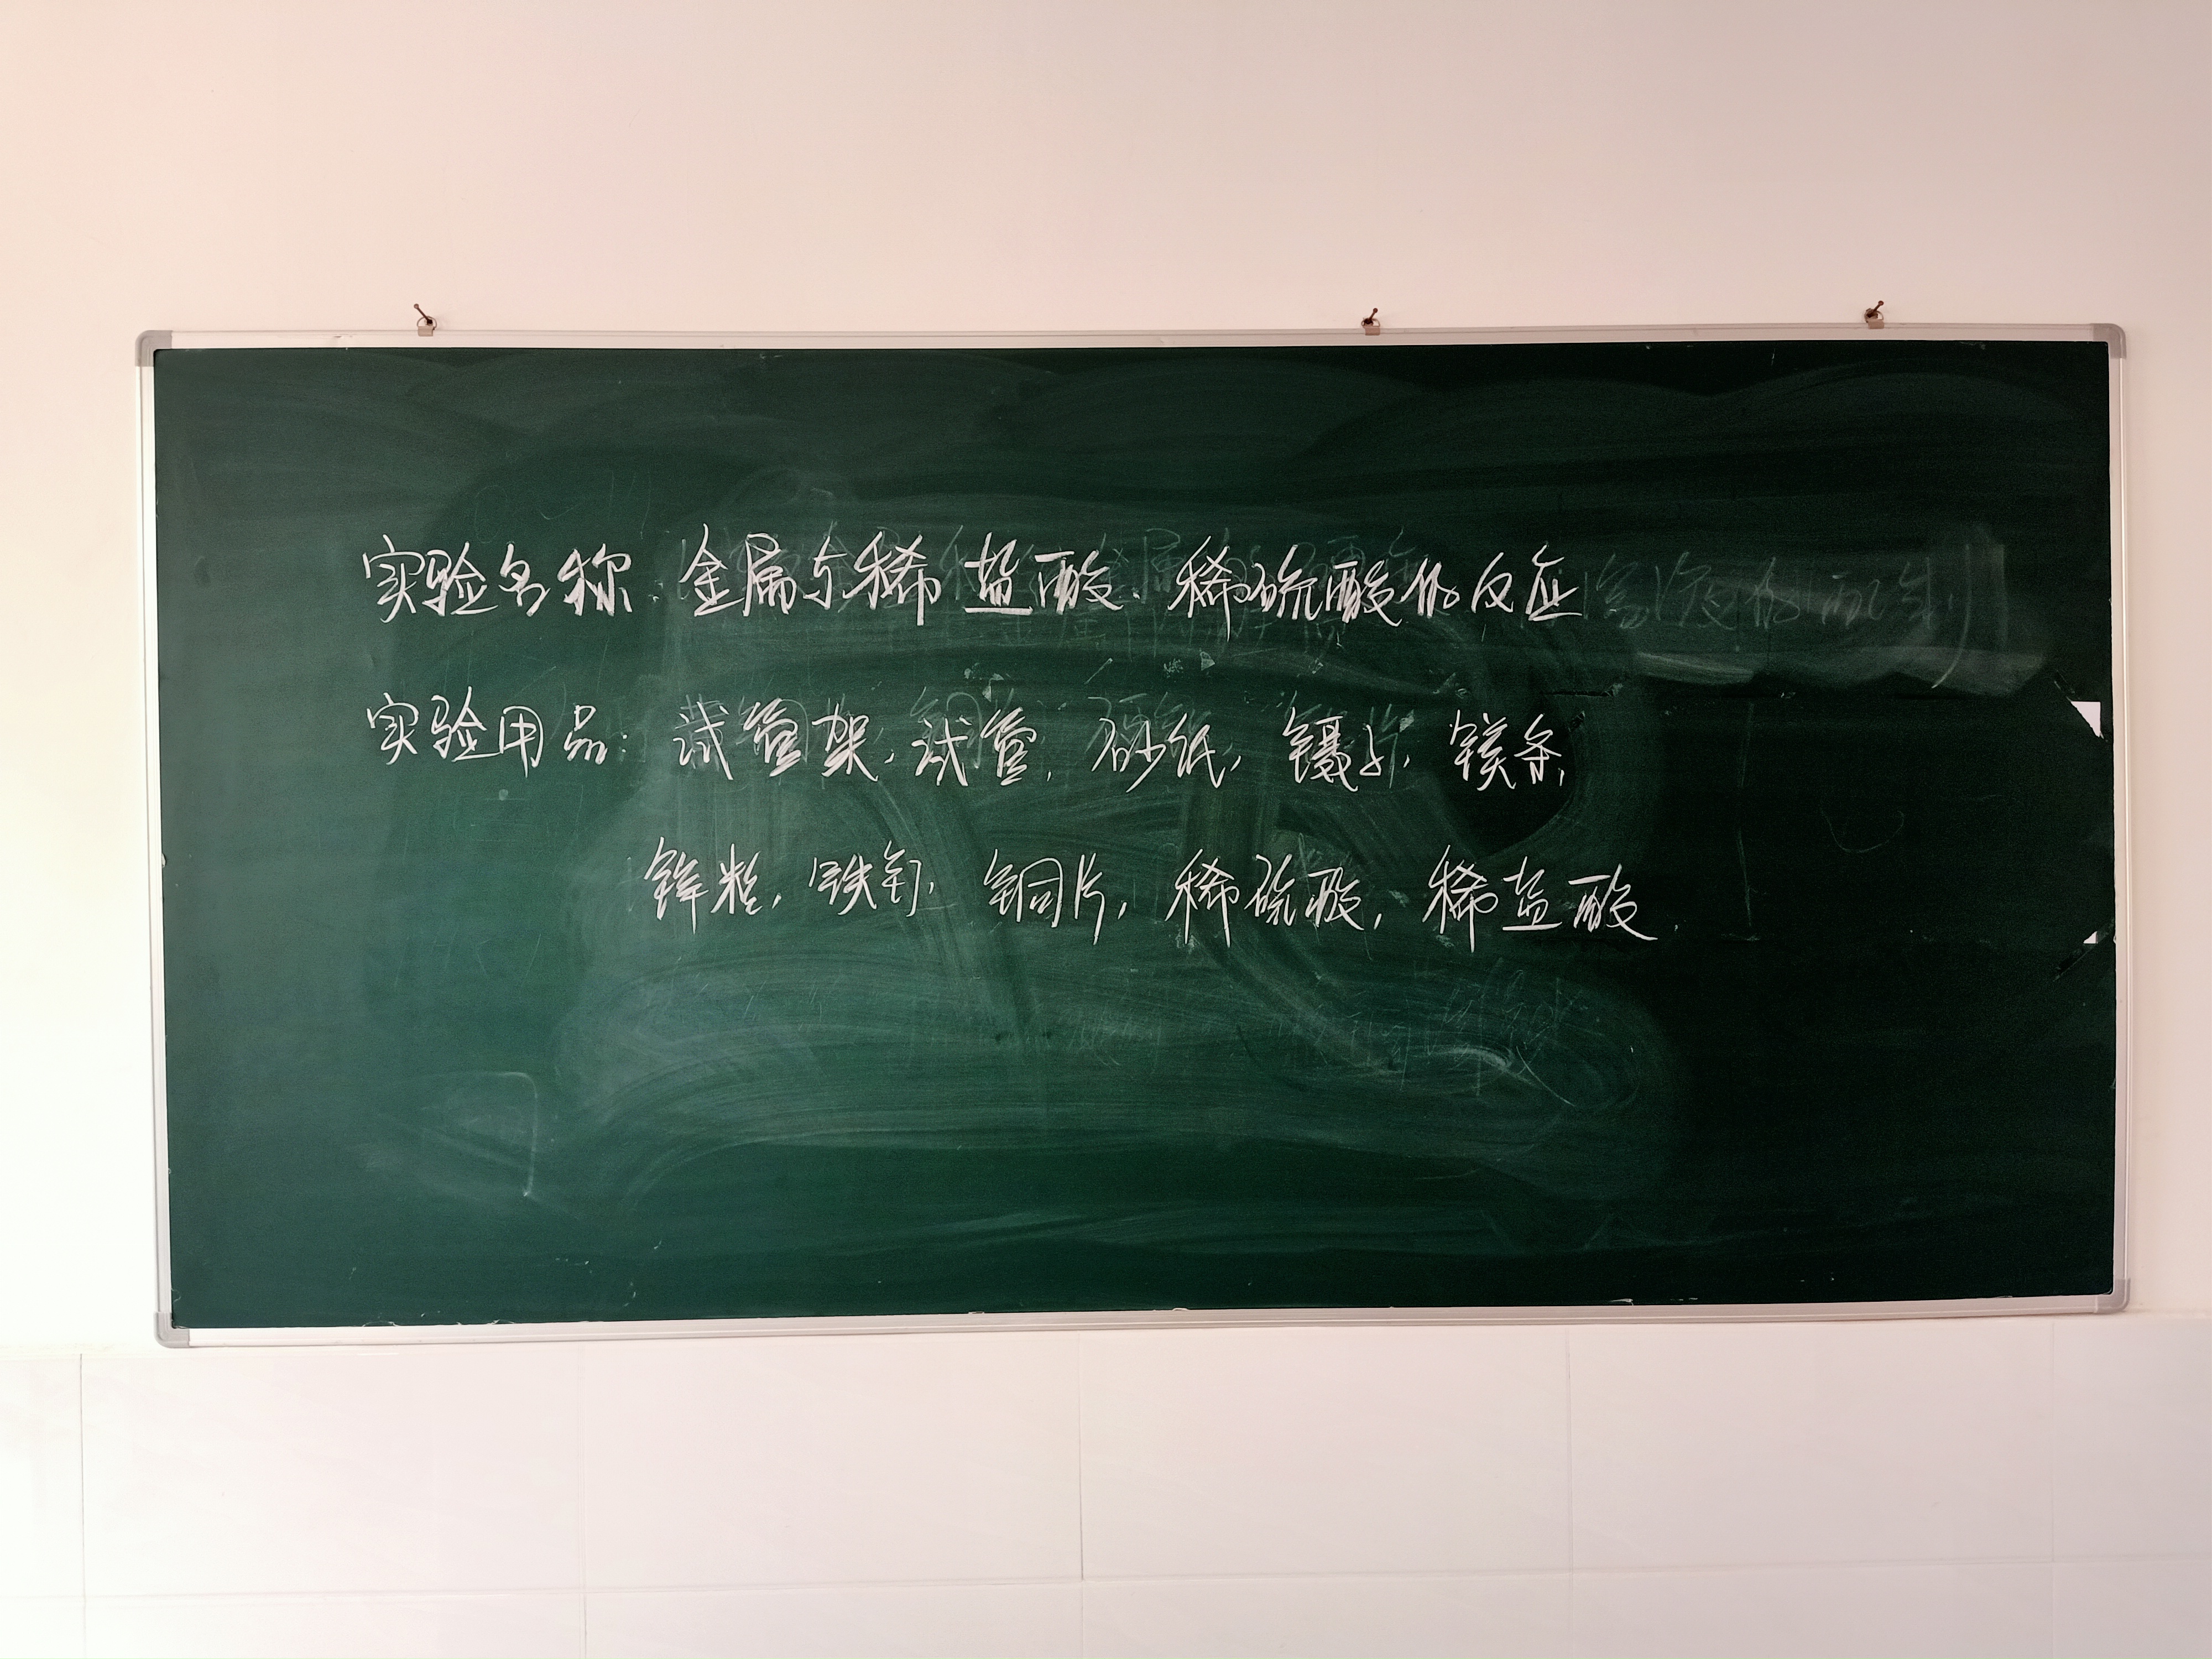 实验名称：金属与稀盐酸、稀硫酸的反应
实验用品：试管架，试管，砂纸，镊子，镁条，
锌粒，铁钉，铜片，稀硫酸，稀盐酸.